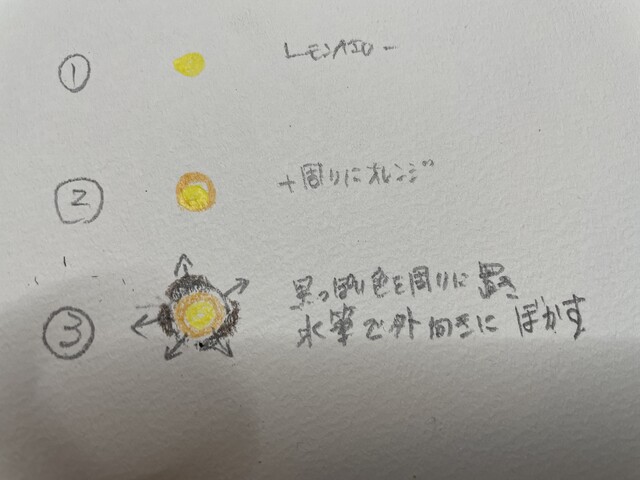 ① レモンイエロー
② +周りにオレンジ
③ 黒っぽい色を周りに置き
水筆で外向きにぼかす